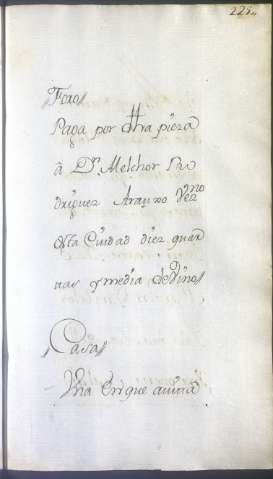 225,,
Foro//
Paga por dha pieza
â Dn. Melchor Ro
driguez Arauxo Vezno
esta Ciudad diez quar
tas y media de Vino//
Casa//
Una en que